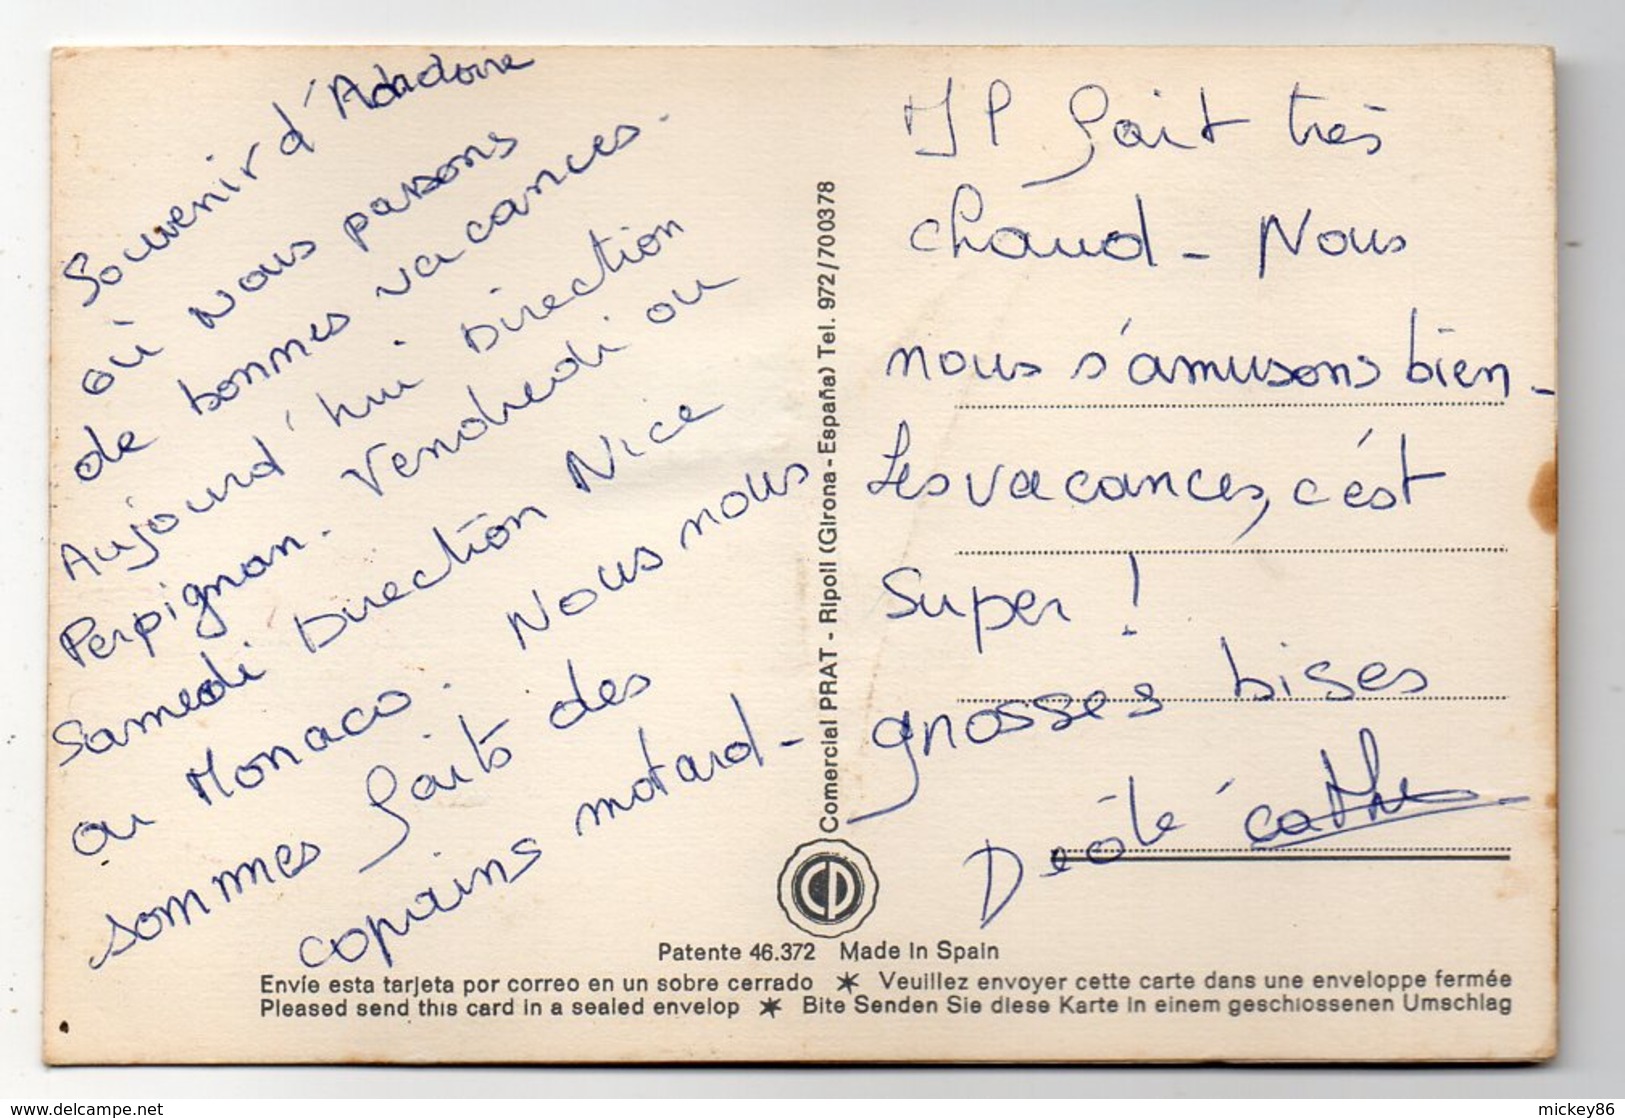 Souvenir d'Andorre
où nous passons
de bonnes vacances.
Aujourd'hui Direction
Perpignan. Vendredi ou
Samedi Direction Nice
ou Monaco. Nous nous
sommes faits des
copains motard -
Il fait très
chaud - Nous
nous s'amusons bien -
Les vacances, c'est
Super !
grosses bises
Comercial PRAT - Ripoll (Girona - España) Tel. 972/700378
CP
Patente 46.372 Made In Spain
Envíe esta tarjeta por correo en un sobre cerrado ✶ Veuillez envoyer cette carte dans une enveloppe fermée
Pleased send this card in a sealed envelop ✶ Bite Senden Sie diese Karte in einem geschlossenen Umschlag
www.delcampe.net
mickey86